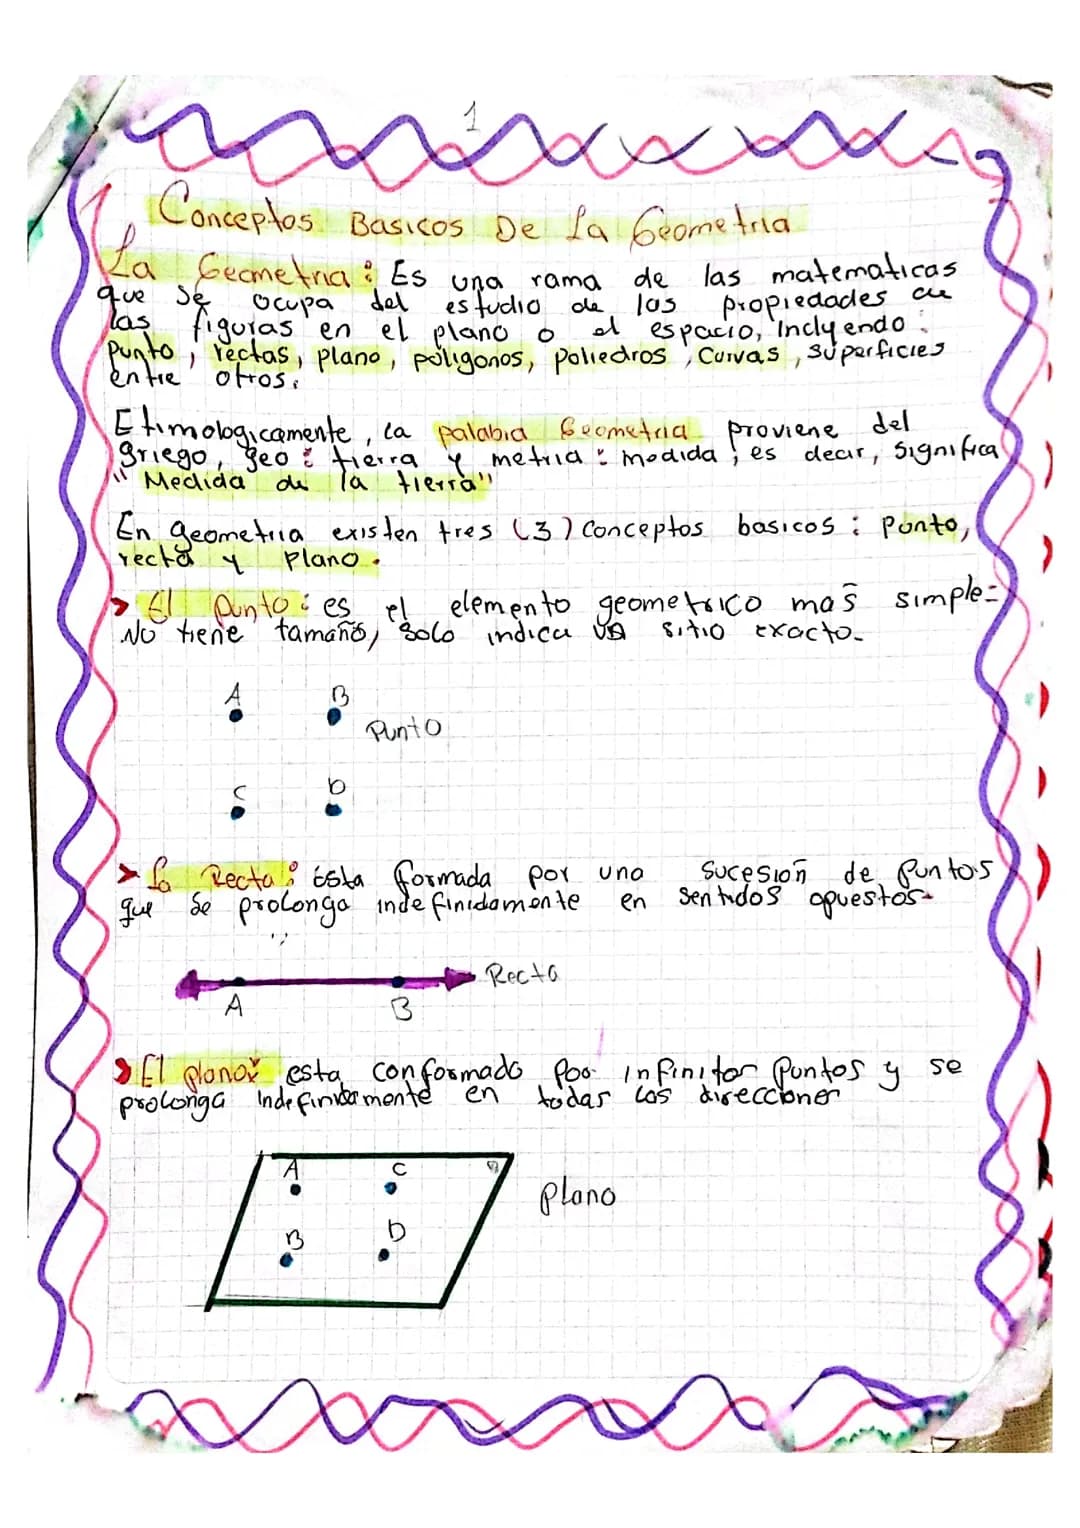 1
Conceptos Basicos De La Geometria
La Geometria: Es una rama de las matematicas
que se ocupa del estudio de las propiedades de
las figuras en el plano o el espacio, Inclyendo:
punto, rectas, plano, poligonos, poliedros, Curvas, superficies
entre otros.
Etimologicamente, la palabra Geometria proviene del
griego, geo: tierra y metria: medida; es decir, significa
"Medida de la tierra"
En geometria existen tres (3) Conceptos basicos: punto,
recta y plano.
> El punto: es el elemento geometrico mas simple=
No tiene tamaño, solo indica un sitio exacto.
A B
Punto
C D
> La Recta: Esta formada por una sucesion de puntos
que se prolonga indefinidamente en sentidos opuestos.
Recta
A B
> El plano: esta conformado por infinitos puntos y se
prolonga indefinidamente en todas las direcciones
A C
plano
B D